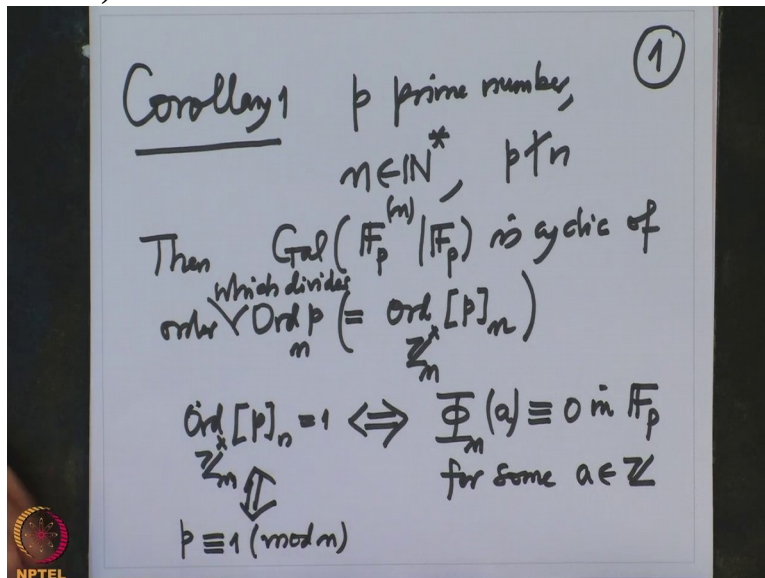 ①
Corollary 1 p prime number,
n ∈ ℕ*, p ∤ n
Then Gal(𝔽_p^(n) | 𝔽_p) is cyclic of
which divides
order ∨ Ord_n p (= Ord_{ℤ_n^*} [p]_n)
Ord_{ℤ_n^*} [p]_n = 1 ⟺ Φ_n(a) ≡ 0 in 𝔽_p
for some a ∈ ℤ
⇕
p ≡ 1 (mod n)
NPTEL